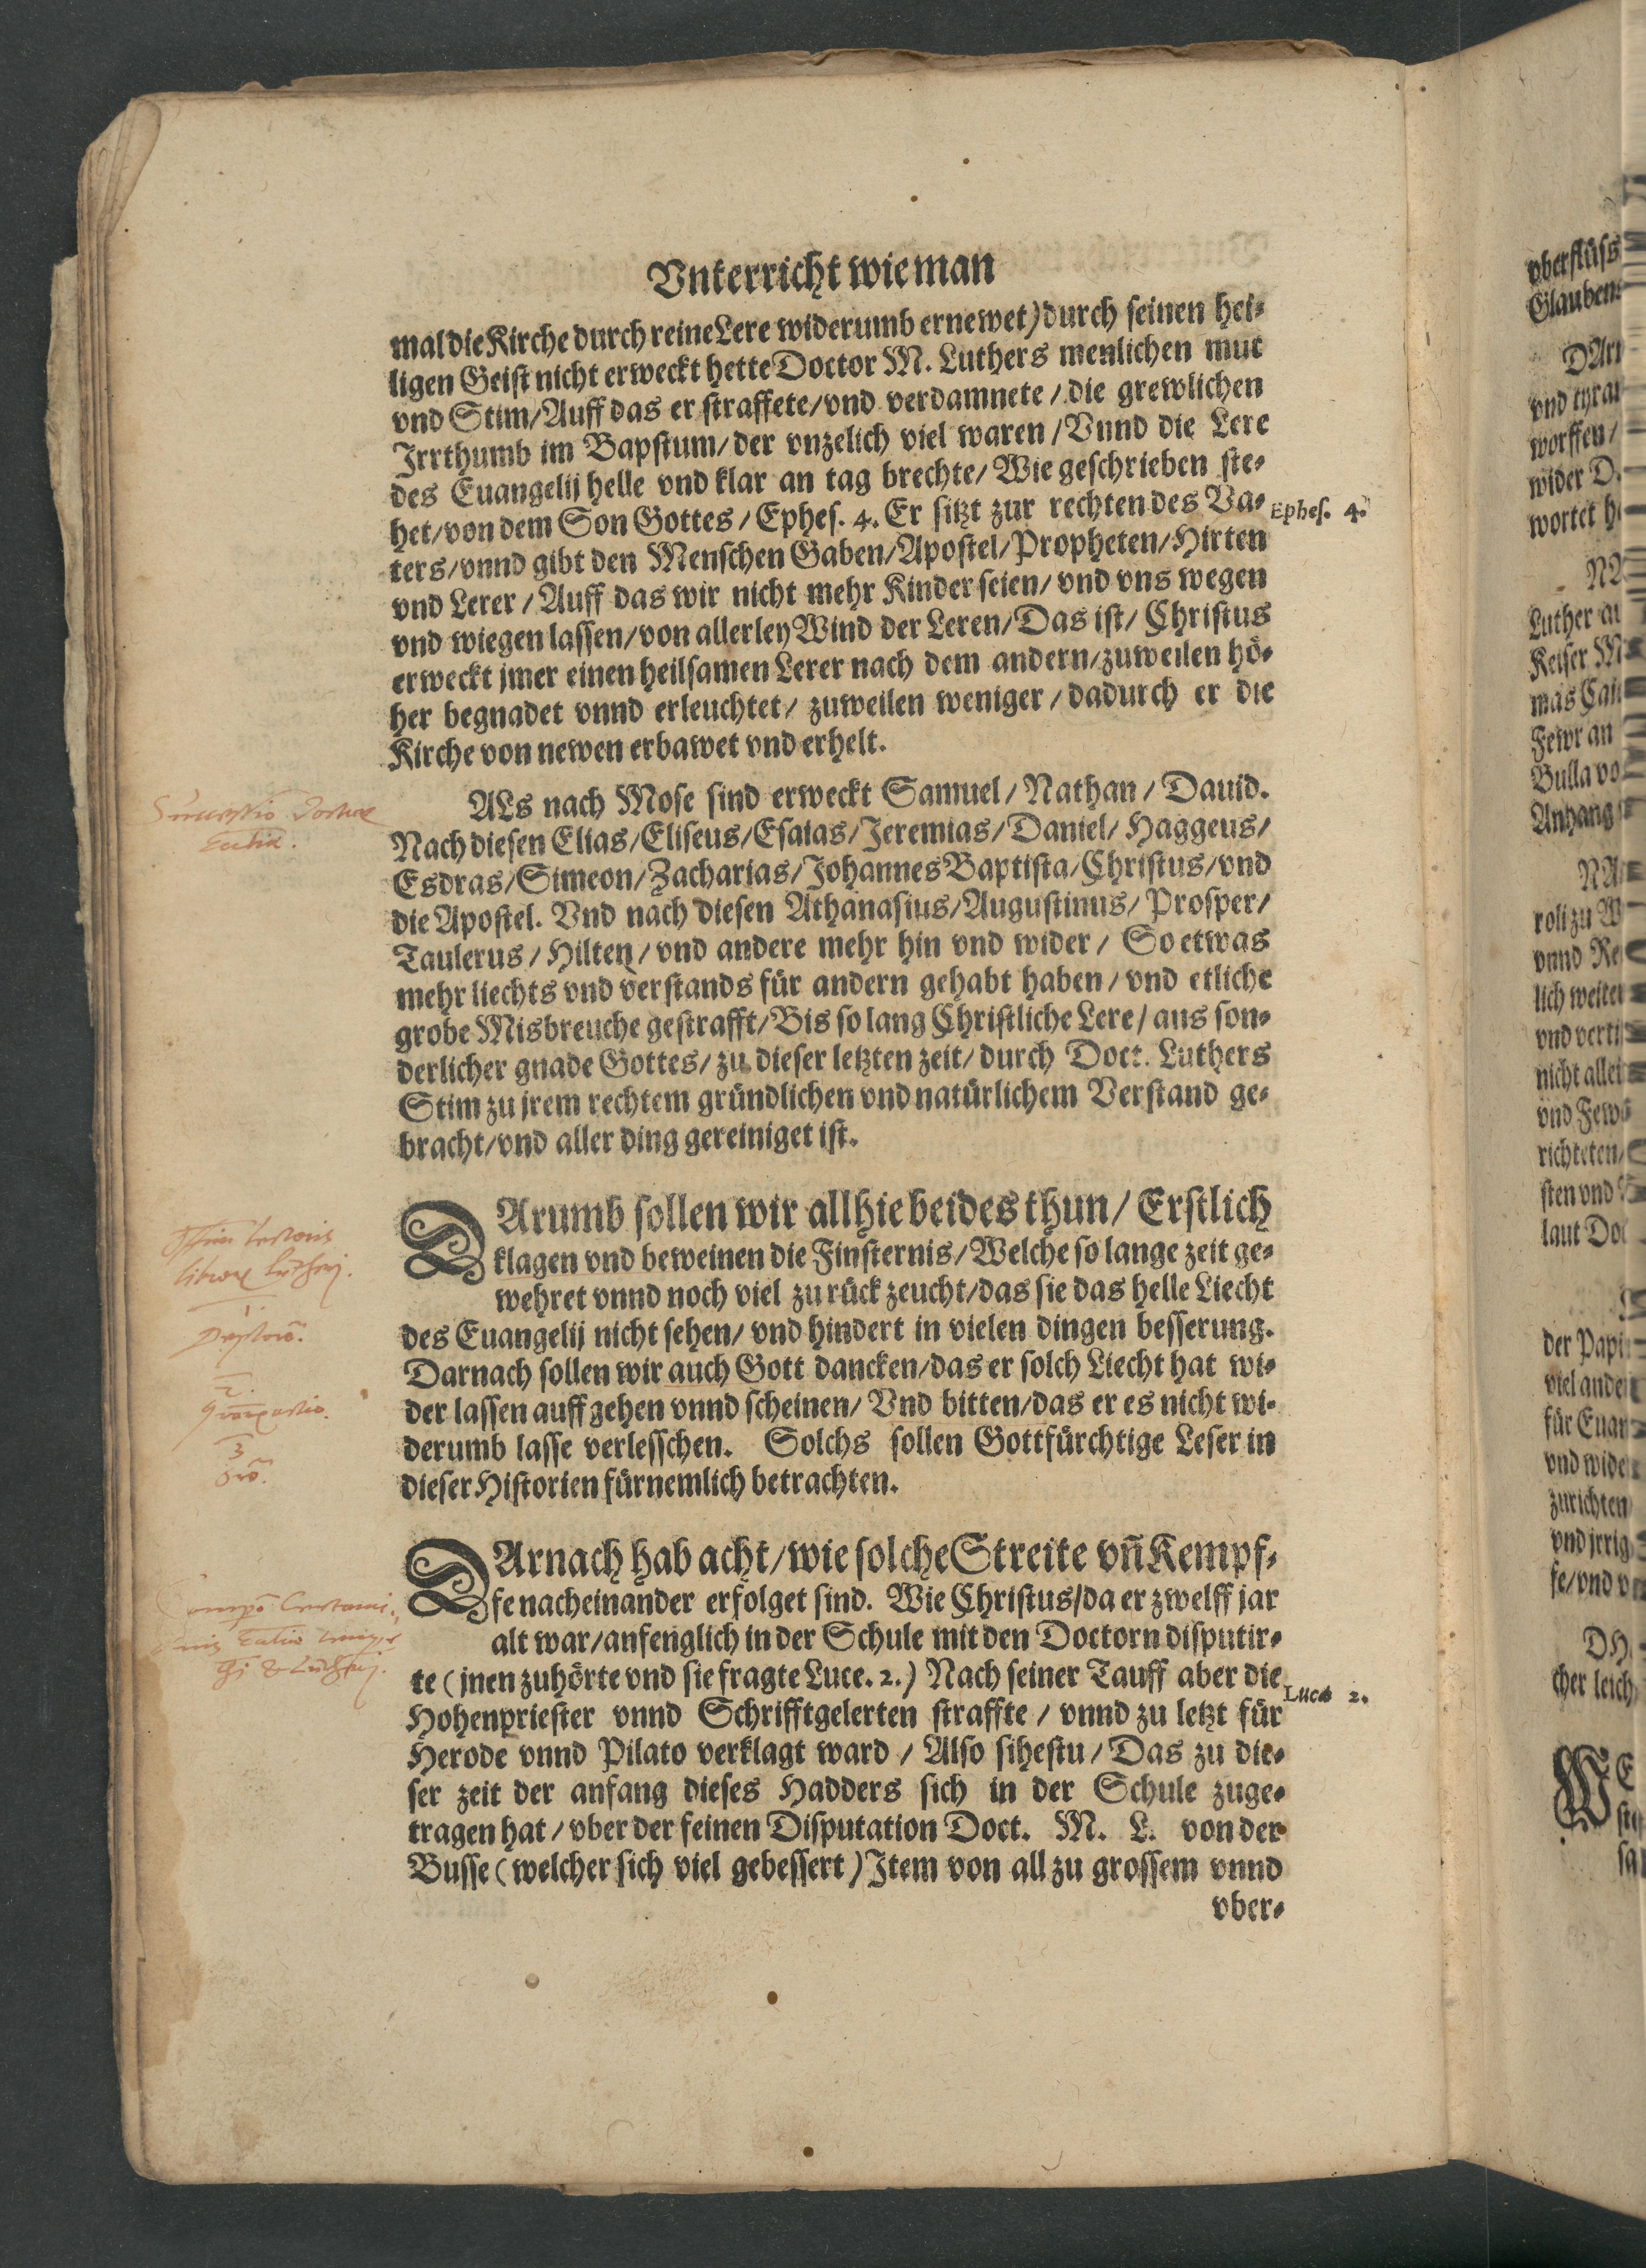 Vnterricht wie man
mal die Kirche durch reine Lere widerumb ernewet) durch seinen hei⸗
ligen Geist nicht erweckt hette Doctor M. Luthers menlichen mut
vnd Stim/ Auff das er straffete/ vnd verdamnete/ die grewlichen
Jrrthumb im Bapstum/ der vnzelich viel waren/ Vnnd die Lere
des Euangelij helle vnd klar an tag brechte/ Wie geschrieben ste⸗
het/ von dem Son Gottes/ Ephes. 4. Er sitzt zur rechten des Va⸗
Ephes. 4.
ters/ vnnd gibt den Menschen Gaben/ Apostel/ Propheten/ Hirten
vnd Lerer/ Auff das wir nicht mehr Kinder seien/ vnd vns wegen
vnd wiegen lassen/ von allerley Wind der Leren/ Das ist/ Christus
erweckt jmer einen heilsamen Lerer nach dem andern/ zuweilen hö⸗
her begnadet vnnd erleuchtet/ zuweilen weniger/ dadurch er die
Kirche von newen erbawet vnd erhelt.
ALs nach Mose sind erweckt Samuel/ Nathan/ Dauid.
Nach diesen Elias/ Eliseus/ Esaias/ Jeremias/ Daniel/ Haggeus/
Esdras/ Simeon/ Zacharias/ Johannes Baptista/ Christus/ vnd
die Apostel. Vnd nach diesen Athanasius/ Augustinus/ Prosper/
Taulerus/ Hilten/ vnd andere mehr hin vnd wider/ So etwas
mehr liechts vnd verstands für andern gehabt haben/ vnd etliche
grobe Misbreuche gestrafft/ Bis so lang Christliche Lere/ aus son⸗
derlicher gnade Gottes/ zu dieser letzten zeit/ durch Doct. Luthers
Stim zu jrem rechtem gründlichen vnd natürlichem Verstand ge⸗
bracht/ vnd aller ding gereiniget ist.
DArumb sollen wir allhie beides thun/ Erstlich
klagen vnd beweinen die Finsternis/ Welche so lange zeit ge⸗
wehret vnnd noch viel zu rück zeucht/ das sie das helle Liecht
des Euangelij nicht sehen/ vnd hindert in vielen dingen besserung.
Darnach sollen wir auch Gott dancken/ das er solch Liecht hat wi⸗
der lassen auff gehen vnnd scheinen/ Vnd bitten/ das er es nicht wi⸗
derumb lasse verlesschen. Solchs sollen Gottfürchtige Leser in
dieser Historien fürnemlich betrachten.
1.
2.
3
DArnach hab acht/ wie solche Streite vn̄ Kempf⸗
fe nacheinander erfolget sind. Wie Christus/ da er zwelff jar
alt war/ anfenglich in der Schule mit den Doctorn disputir⸗
te (jnen zuhörte vnd sie fragte Luce. 2.) Nach seiner Tauff aber die
Lucæ 2.
Hohenpriester vnnd Schrifftgelerten straffte/ vnnd zu letzt für
Herode vnnd Pilato verklagt ward/ Also sihestu/ Das zu die⸗
ser zeit der anfang dieses Hadders sich in der Schule zuge⸗
tragen hat/ vber der feinen Disputation Doct. M. L. von der
Busse (welcher sich viel gebessert) Jtem von all zu grossem vnnd
vber⸗